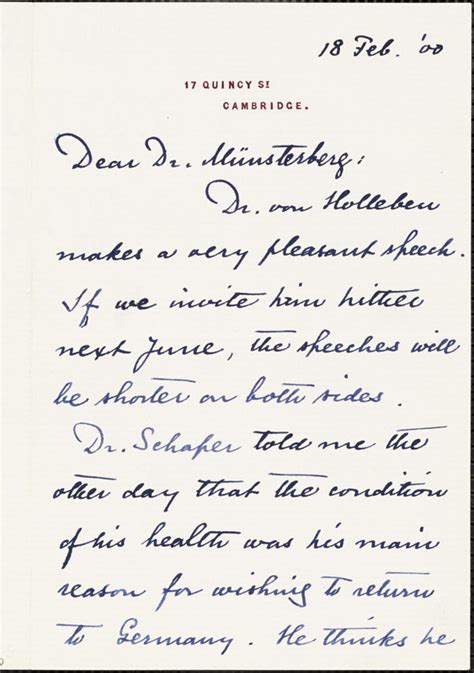 18 Feb. '00
17 QUINCY ST
CAMBRIDGE.
Dear Dr. Münsterberg:
Dr. von Holleben
makes a very pleasant speech.
If we invite him hither
next June, the speeches will
be shorter on both sides.
Dr. Schaper told me the
other day that the condition
of his health was his main
reason for wishing to return
to Germany. He thinks he